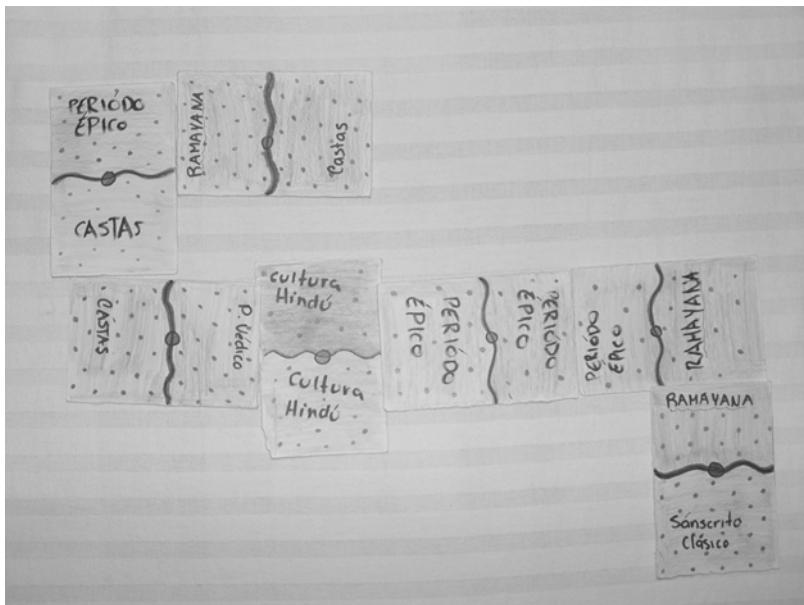 PERIÓDO
ÉPICO
CASTAS
RAMAYANA
Castas
CASTAS
P. Védico
cultura
Hindú
Cultura
Hindú
PERIÓDO
ÉPICO
PERIÓDO
ÉPICO
PERIÓDO
EPICO
RAMAYANA
RAMAYANA
Sánscrito
Clásico